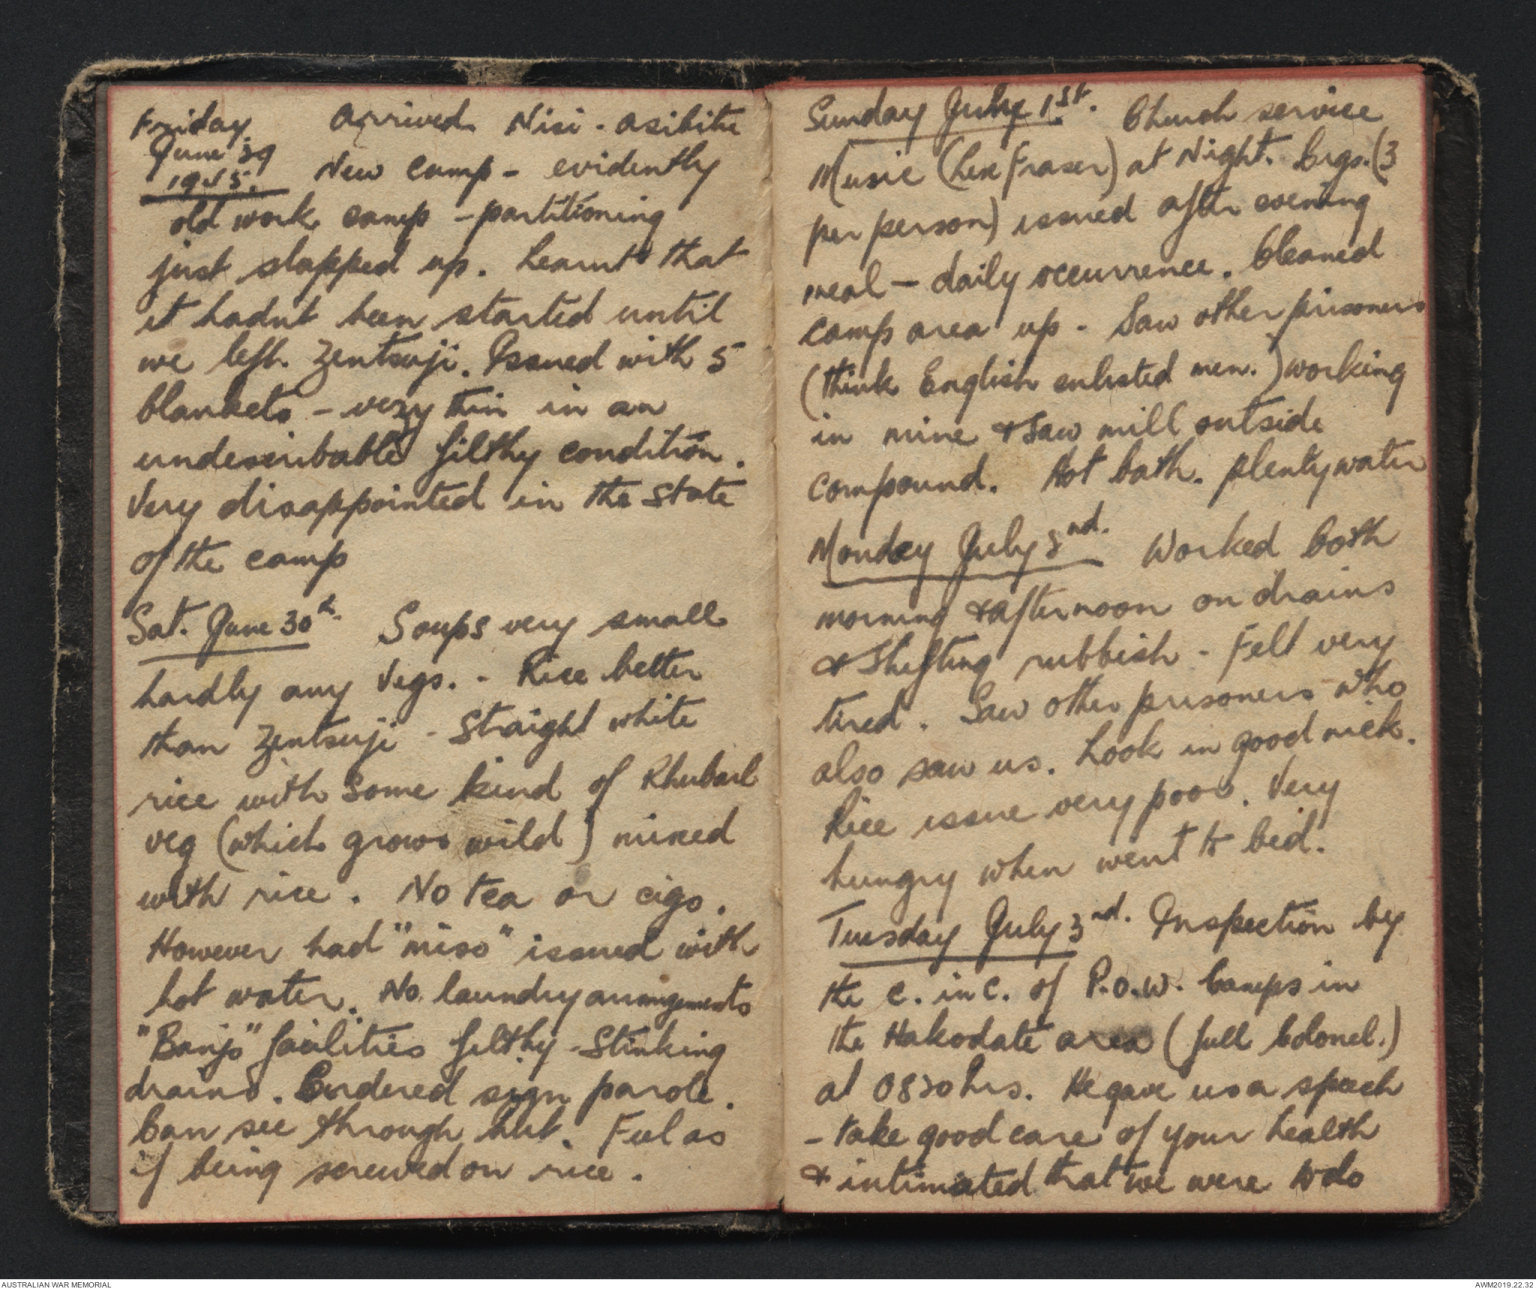 Friday Arrived Nisi-Asibitu
June 29 New camp - evidently
1945.
old work camp - partitioning
just slapped up. Learnt that
it hadnt been started until
we left Zentsuji. Issued with 5
blankets - very thin in an
undescribable filthy condition.
Very disappointed in the state
of the camp
Sat. June 30th. Soups very small
hardly any Vegs. - Rice better
than Zentsuji - Straight white
rice with some kind of Rhubarb
veg (which grows wild) mixed
with rice. No tea or cigs.
However had "miso" issued with
hot water. No laundry arrangements
"Banjo" facilities filthy - Stinking
drains. Ordered sign parole.
Can see through hut. Feel as
if being screwed on rice.
Sunday July 1st. Church service
Music (Lex Fraser) at Night. Cigs. (3
per person) issued after evening
meal - daily occurrence. Cleaned
camp area up - Saw other prisoners
(think English enlisted men.) working
in mine & saw mill outside
compound. Hot bath. plenty water
Monday July 2nd. Worked both
morning & afternoon on drains
& Shifting rubbish - Felt very
tired. Saw other prisoners who
also saw us. Look in good nick.
Rice issue very poor. Very
hungry when went to bed.
Tuesday July 3nd. Inspection by
the C. in C. of P.O.W. Camps in
the Hakodate area (full Colonel.)
at 0830 hrs. He gave us a speech
- take good care of your health
& intimated that we were to do
AUSTRALIAN WAR MEMORIAL
AWM2019.22.32